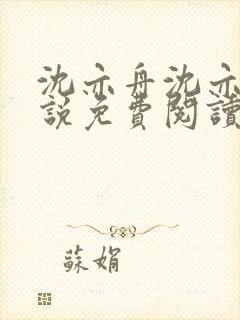 沈亦舟沈亦
說免費閱讀
蘇娟